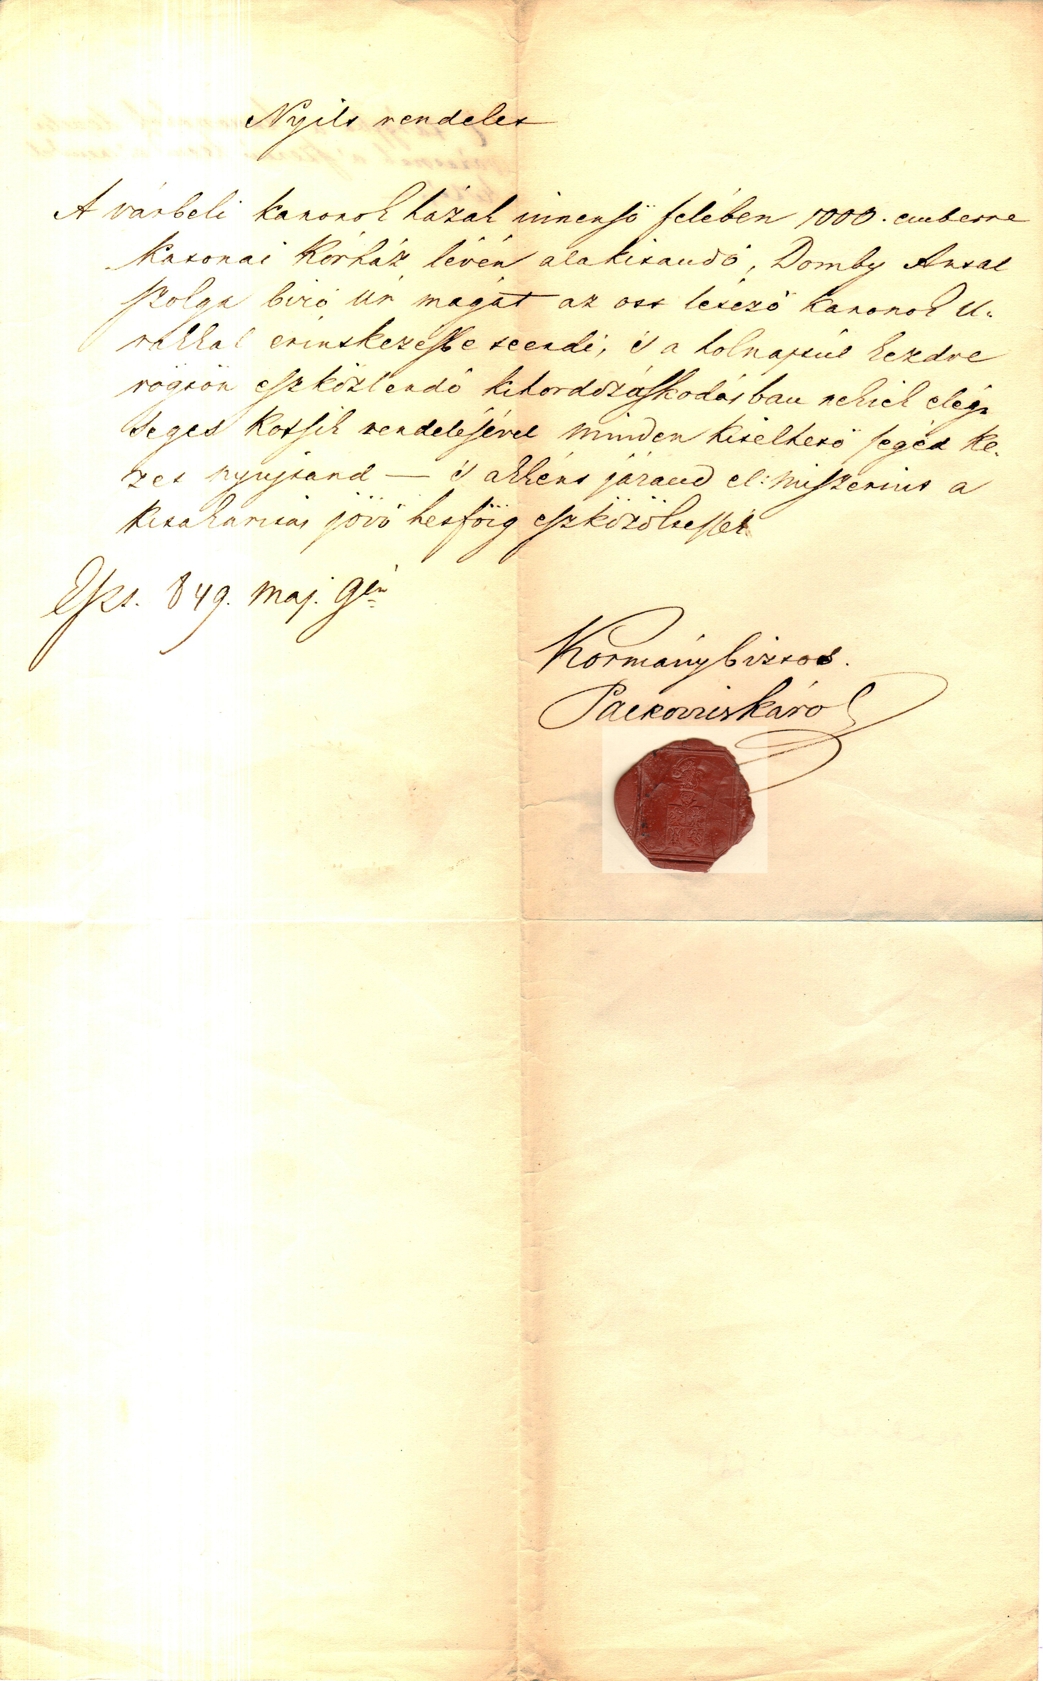 Nyilt rendelet
A várbeli kanonok házak innenső felében 1000. emberre
katonai Kórház lévén alakitandó, Domby Antal
Szolga biró Úr magát az ott létező kanonok U-
rakkal érintkezésbe teendi, és a holnaptúl kezdve
rögtön eszközlendő kihordozáskodásban nekiek elég-
séges kotsik rendelésével minden kitelhető segéd ke-
zet nyujtand — és akként járand el: miszerint a
kitakaritás jövő hetfőig eszközöltessék
Eszt. 849. Maj. 9én
Kormánybiztos.
Palkovits Károl